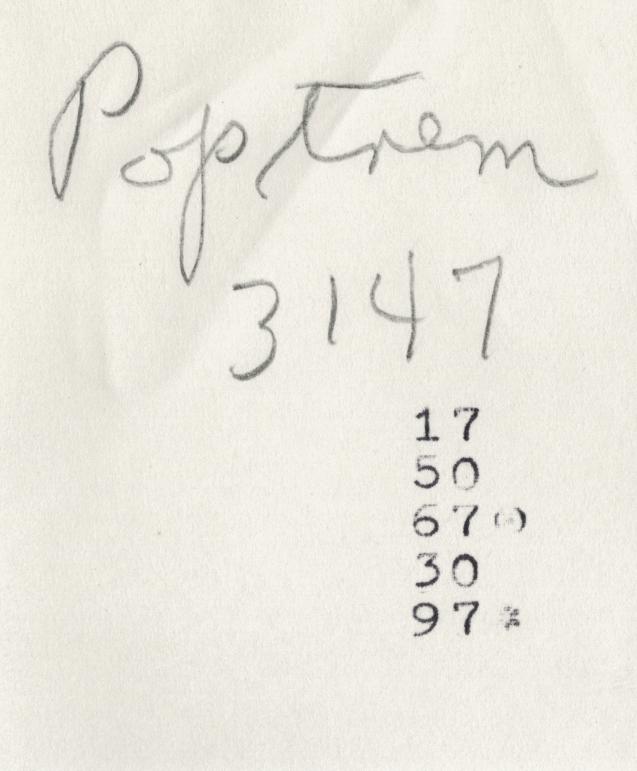 Pop trem
3147
17
50
67
30
97 *